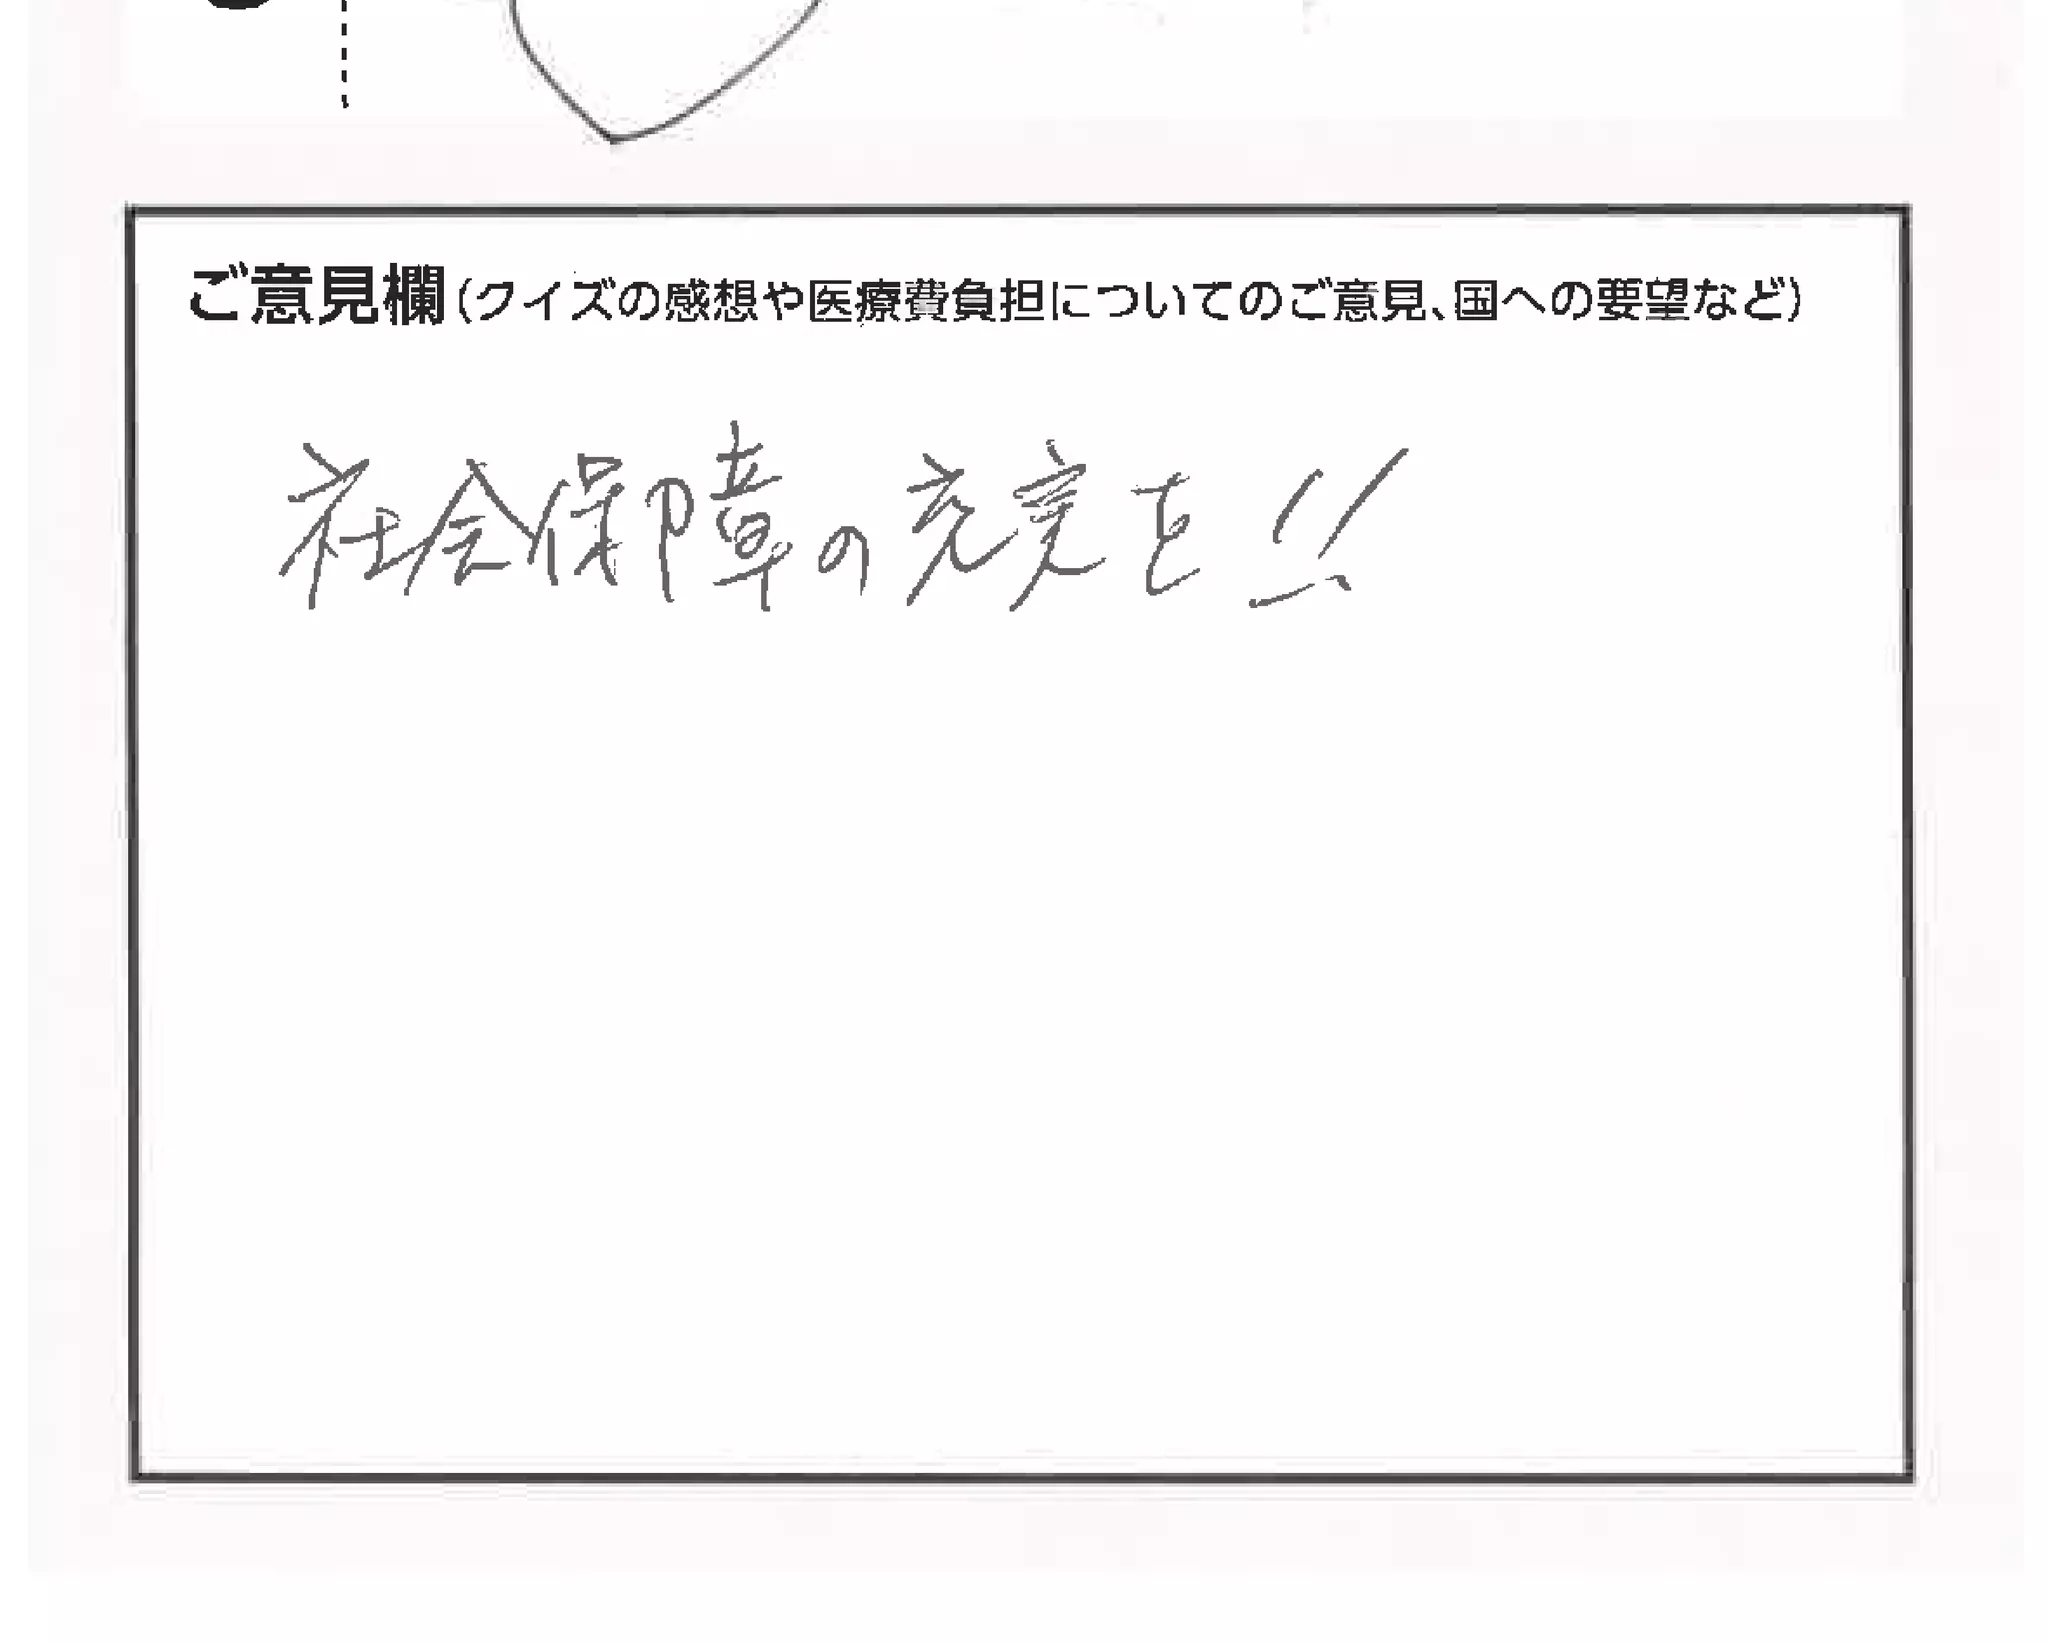 ご意見欄(クイズの感想や医療費負担についてのご意見、国への要望など)
社会保障の充実を!!